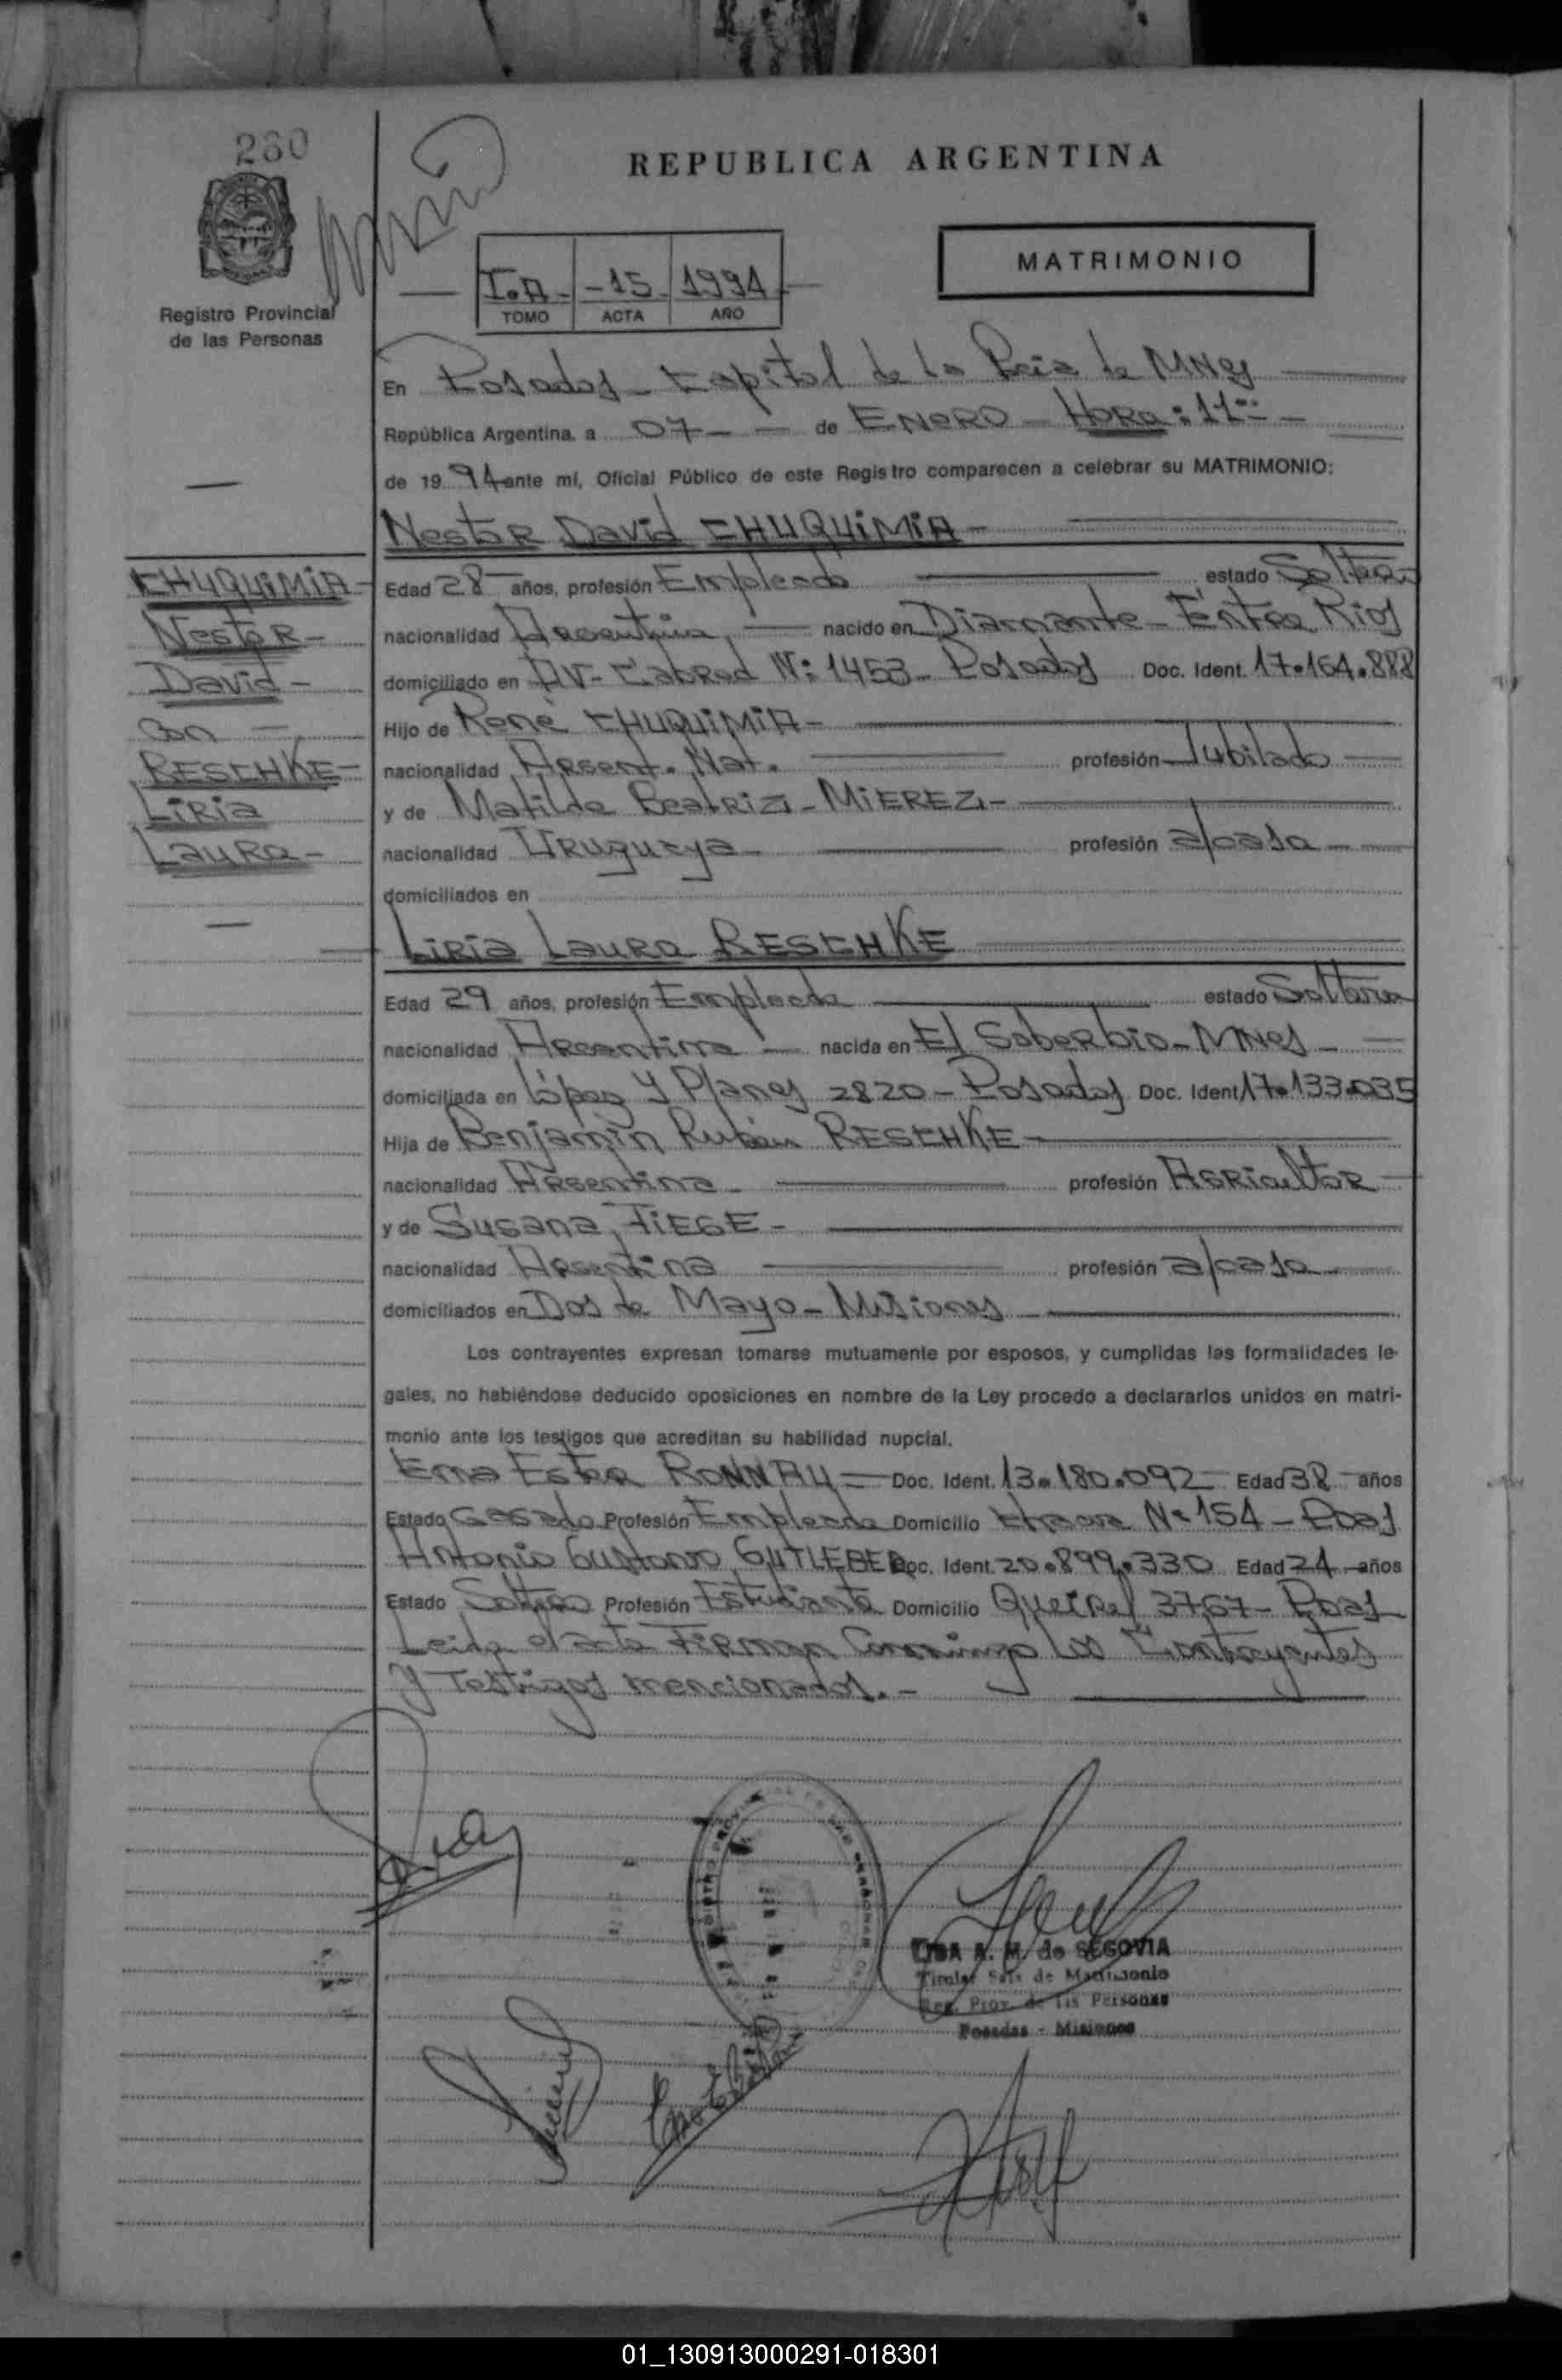 260
REPUBLICA ARGENTINA
MATRIMONIO
Registro Provincial
de las Personas
I.A - -15- 1994
TOMO ACTA AÑO
En Posadas - Capital de la Pcia de Mnes
República Argentina, a 07 - - de ENERO - HORA: 11
de 19 94 ante mí, Oficial Público de este Registro comparecen a celebrar su MATRIMONIO:
Nestor David CHUQUIMIA -
CHUQUIMIA -
Nestor -
David -
con -
RESCHKE -
Liria
Laura -
Edad 28 años, profesión Empleado estado Soltero
nacionalidad Argentina, nacido en Diamante - Entre Rios
domiciliado en AV- Cabred Nº: 1453 - Posadas Doc. Ident. 17.164.888
Hijo de René CHUQUIMIA -
nacionalidad Argent. Nat. profesión Jubilado
y de Matilde Beatriz - MIEREZ -
nacionalidad Uruguaya - profesión a/casa
domiciliados en
Liria Laura RESCHKE
Edad 29 años, profesión Empleada estado Soltera
nacionalidad Argentina nacida en El Soberbio - Mnes -
domiciliada en López y Planes 2820 - Posadas Doc. Ident. 17.133.035
Hija de Benjamin Rubén RESCHKE -
nacionalidad Argentina - profesión Agricultor
y de Susana FIEGE -
nacionalidad Argentina profesión a/casa
domiciliados en Dos de Mayo - Misiones
Los contrayentes expresan tomarse mutuamente por esposos, y cumplidas las formalidades le-
gales, no habiéndose deducido oposiciones en nombre de la Ley procedo a declararlos unidos en matri-
monio ante los testigos que acreditan su habilidad nupcial.
Ema Ester RONNAU - Doc. Ident. 13.180.092 Edad 38 años
Estado Casada Profesión Empleada Domicilio Nº 154 - Pdas
Antonio Gustavo GUTLEBER Doc. Ident. 20.899.330 Edad 24 años
Estado Soltero Profesión Estudiante Domicilio Queirel 3767 - Pdas
Leida el acta Firman Conmigo los Contrayentes
y Testigos mencionados. -
LISA A. M. de SEGOVIA
Titular Sala de Matrimonio
Reg. Prov. de las Personas
Posadas - Misiones
01_130913000291-018301